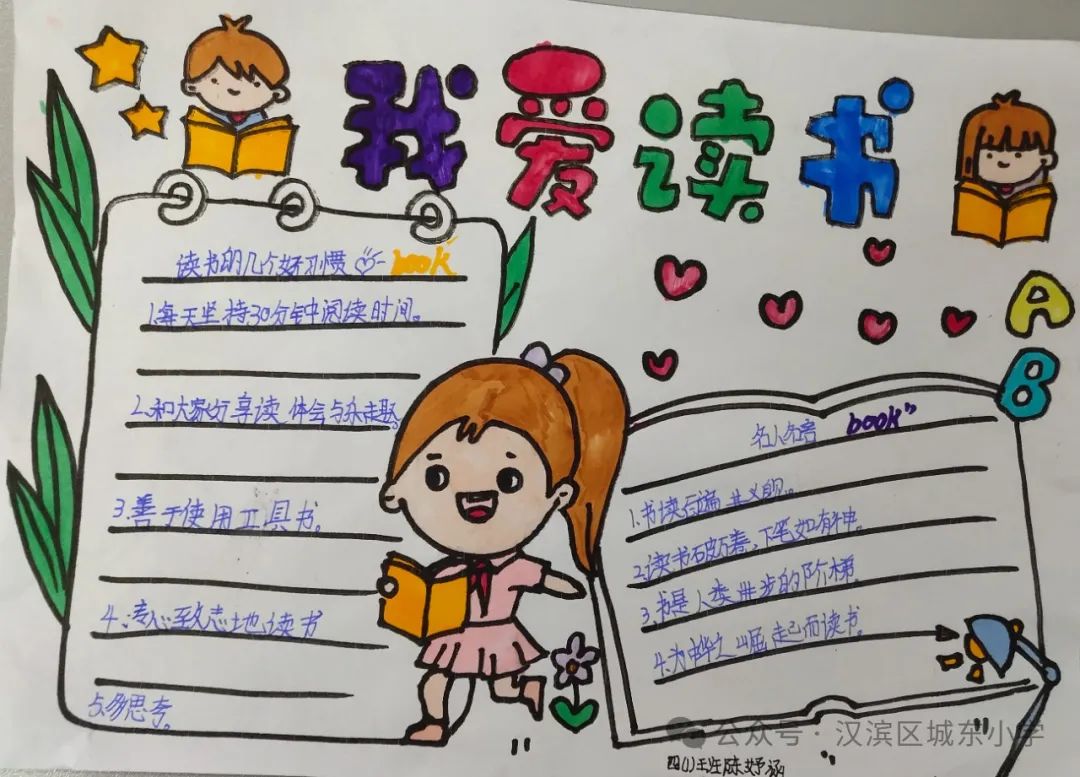 我爱读书
读书的几个好习惯 book
1.每天坚持30分钟阅读时间。
2.和大家分享读 体会与杂志题。
3.善于使用工具书。
4.专心致志地读书
5.多思考。
A
B
名人名言 book"
1.书读百遍其义自见。
2.读书破万卷,下笔如有神。
3.书是人类进步的阶梯。
4.为中华之崛起而读书。
公众号·汉滨区城东小学
四(1)班陈妤涵